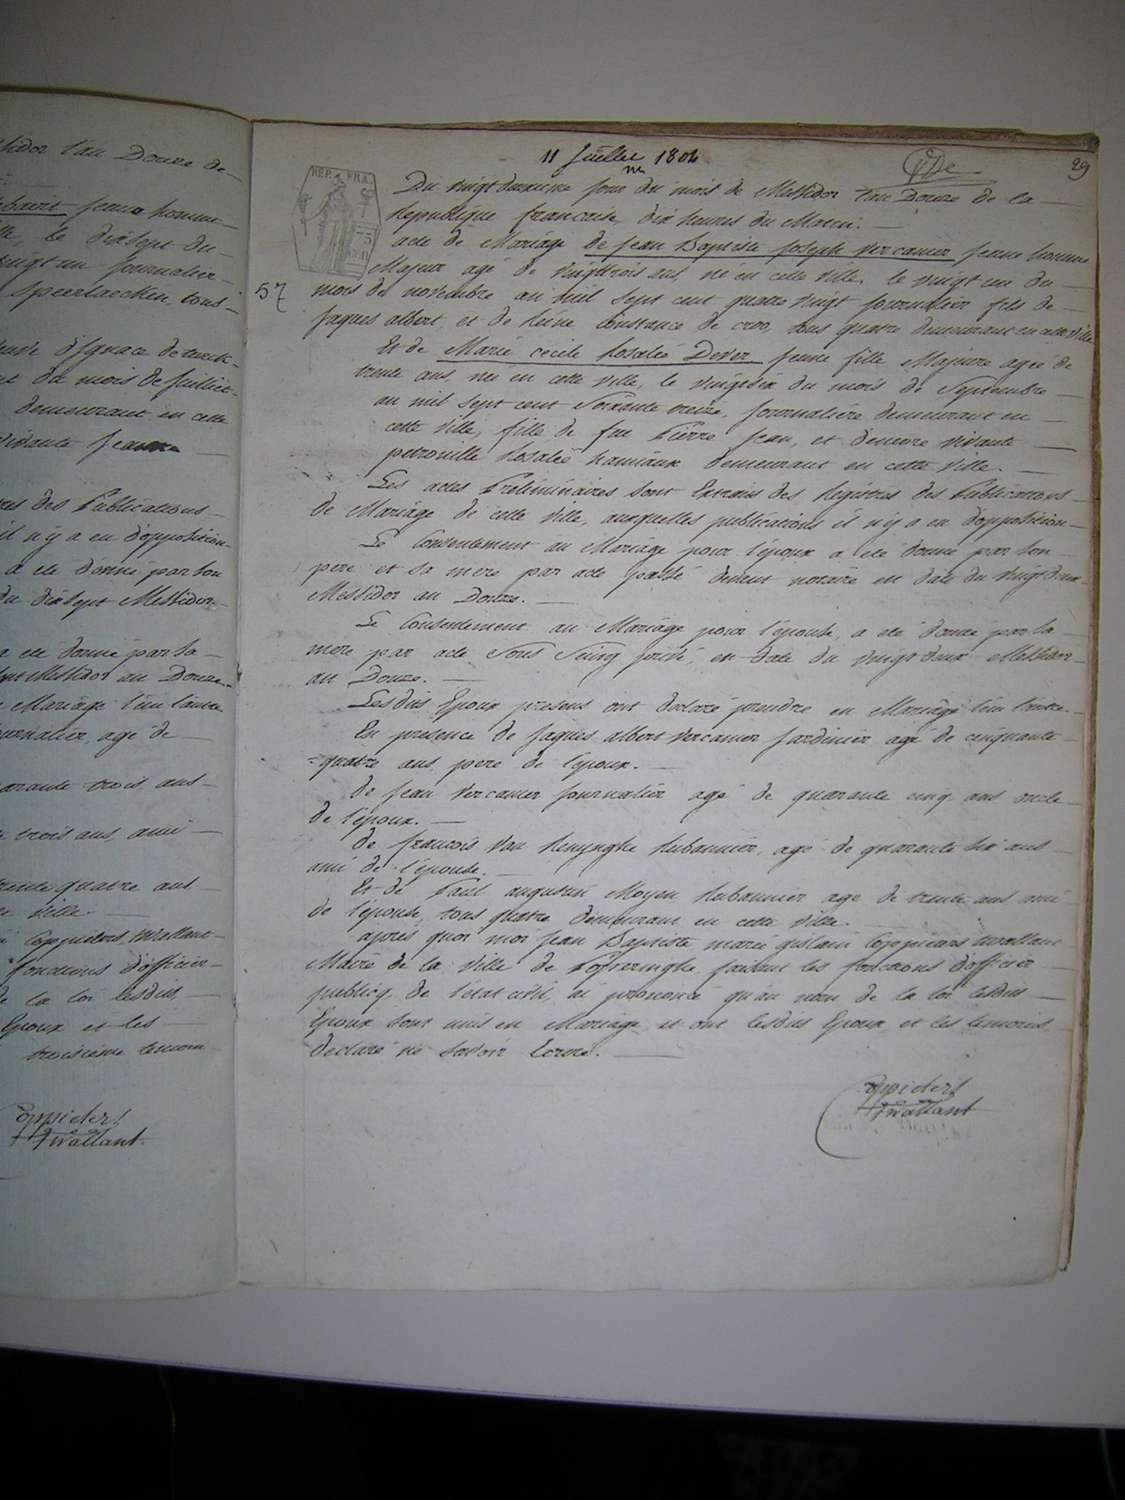 sidor l'an Douze de
jeune homme
le dixsept du
vingt un journalier
Speerlaecken tous
d'Ignace de
du mois de Juillet
demeurant en cette
vivante jeanne
des Publications
il n'y a eu d'opposition
a été donné par son
du dixsept Messidor
a été donné par sa
Messidor an Douze
Mariage l'un l'autre
journalier, agé de
quarante trois ans
trois ans, ami
trente quatre ans
ville.
Coppieters, Wvallant
fonctions d'officier
de la loi lesdits
Epoux et les
troisième temoin
Coppieters
Wvallant
11 Juillet 1804
29
REP. FRA.
57
Du vingt deuxieme jour du mois de Messidor l'an Douze de la
Republique francaise, dix heures du Matin.
acte de Mariage de jean Baptiste joseph Vercamer jeune homme
Majeur agé de vingttrois ans, né en cette ville, le vingt un du
mois de novembre an mil sept cent quatre vingt journalier fils de
jaques albert, et de Reine Constance de croo, tous quatre demeurant en cette ville
Et de Marie cecile Rosalie Dever jeune fille Majeure agée de
trente ans, née en cette ville, le vingtsix du mois de Septembre
an mil sept cent Soixante treize, journalière demeurant en
cette ville, fille de feu Pierre jean, et de vivante
petronille Rosalie hamiaux demeurant en cette ville.
Les actes Preliminaires sont Extraits des Registres des Publications
de Mariage de cette ville, auxquelles publications il n'y a eu d'opposition
Le Consentement au Mariage pour l'époux a été donné par son
pere et sa mere par acte passé devant notaire en date du vingt deux
Messidor an Douze.
Le Consentement au Mariage pour l'épouse, a été donné par sa
mere par acte Sous Seing privé, en date du vingt deux Messidor
an Douze.
Lesdits Epoux presens ont declaré prendre en Mariage l'un l'autre.
En presence de jaques albert Vercamer jardinier agé de cinquante
quatre ans, pere de l'époux.
de jean Vercamer journalier agé de quarante cinq ans oncle
de l'époux.
de francois Van Renynghe Rubannier, agé de quarante six ans
ami de l'épouse.
Et de Paul augustin Moyen Rubannier agé de trente ans ami
de l'épouse, tous quatre demeurant en cette ville.
après quoi moi jean Baptiste marie guslain Coppieters Wvallant
Maire de la ville de Poperinghe, faisant les fonctions d'officier
publicq de l'état civil, ai prononcé qu'au nom de la loi lesdits
Epoux sont unis en Mariage, et ont lesdits Epoux, et les temoins
declaré ne savoir Ecrire.
Coppieters
Wvallant